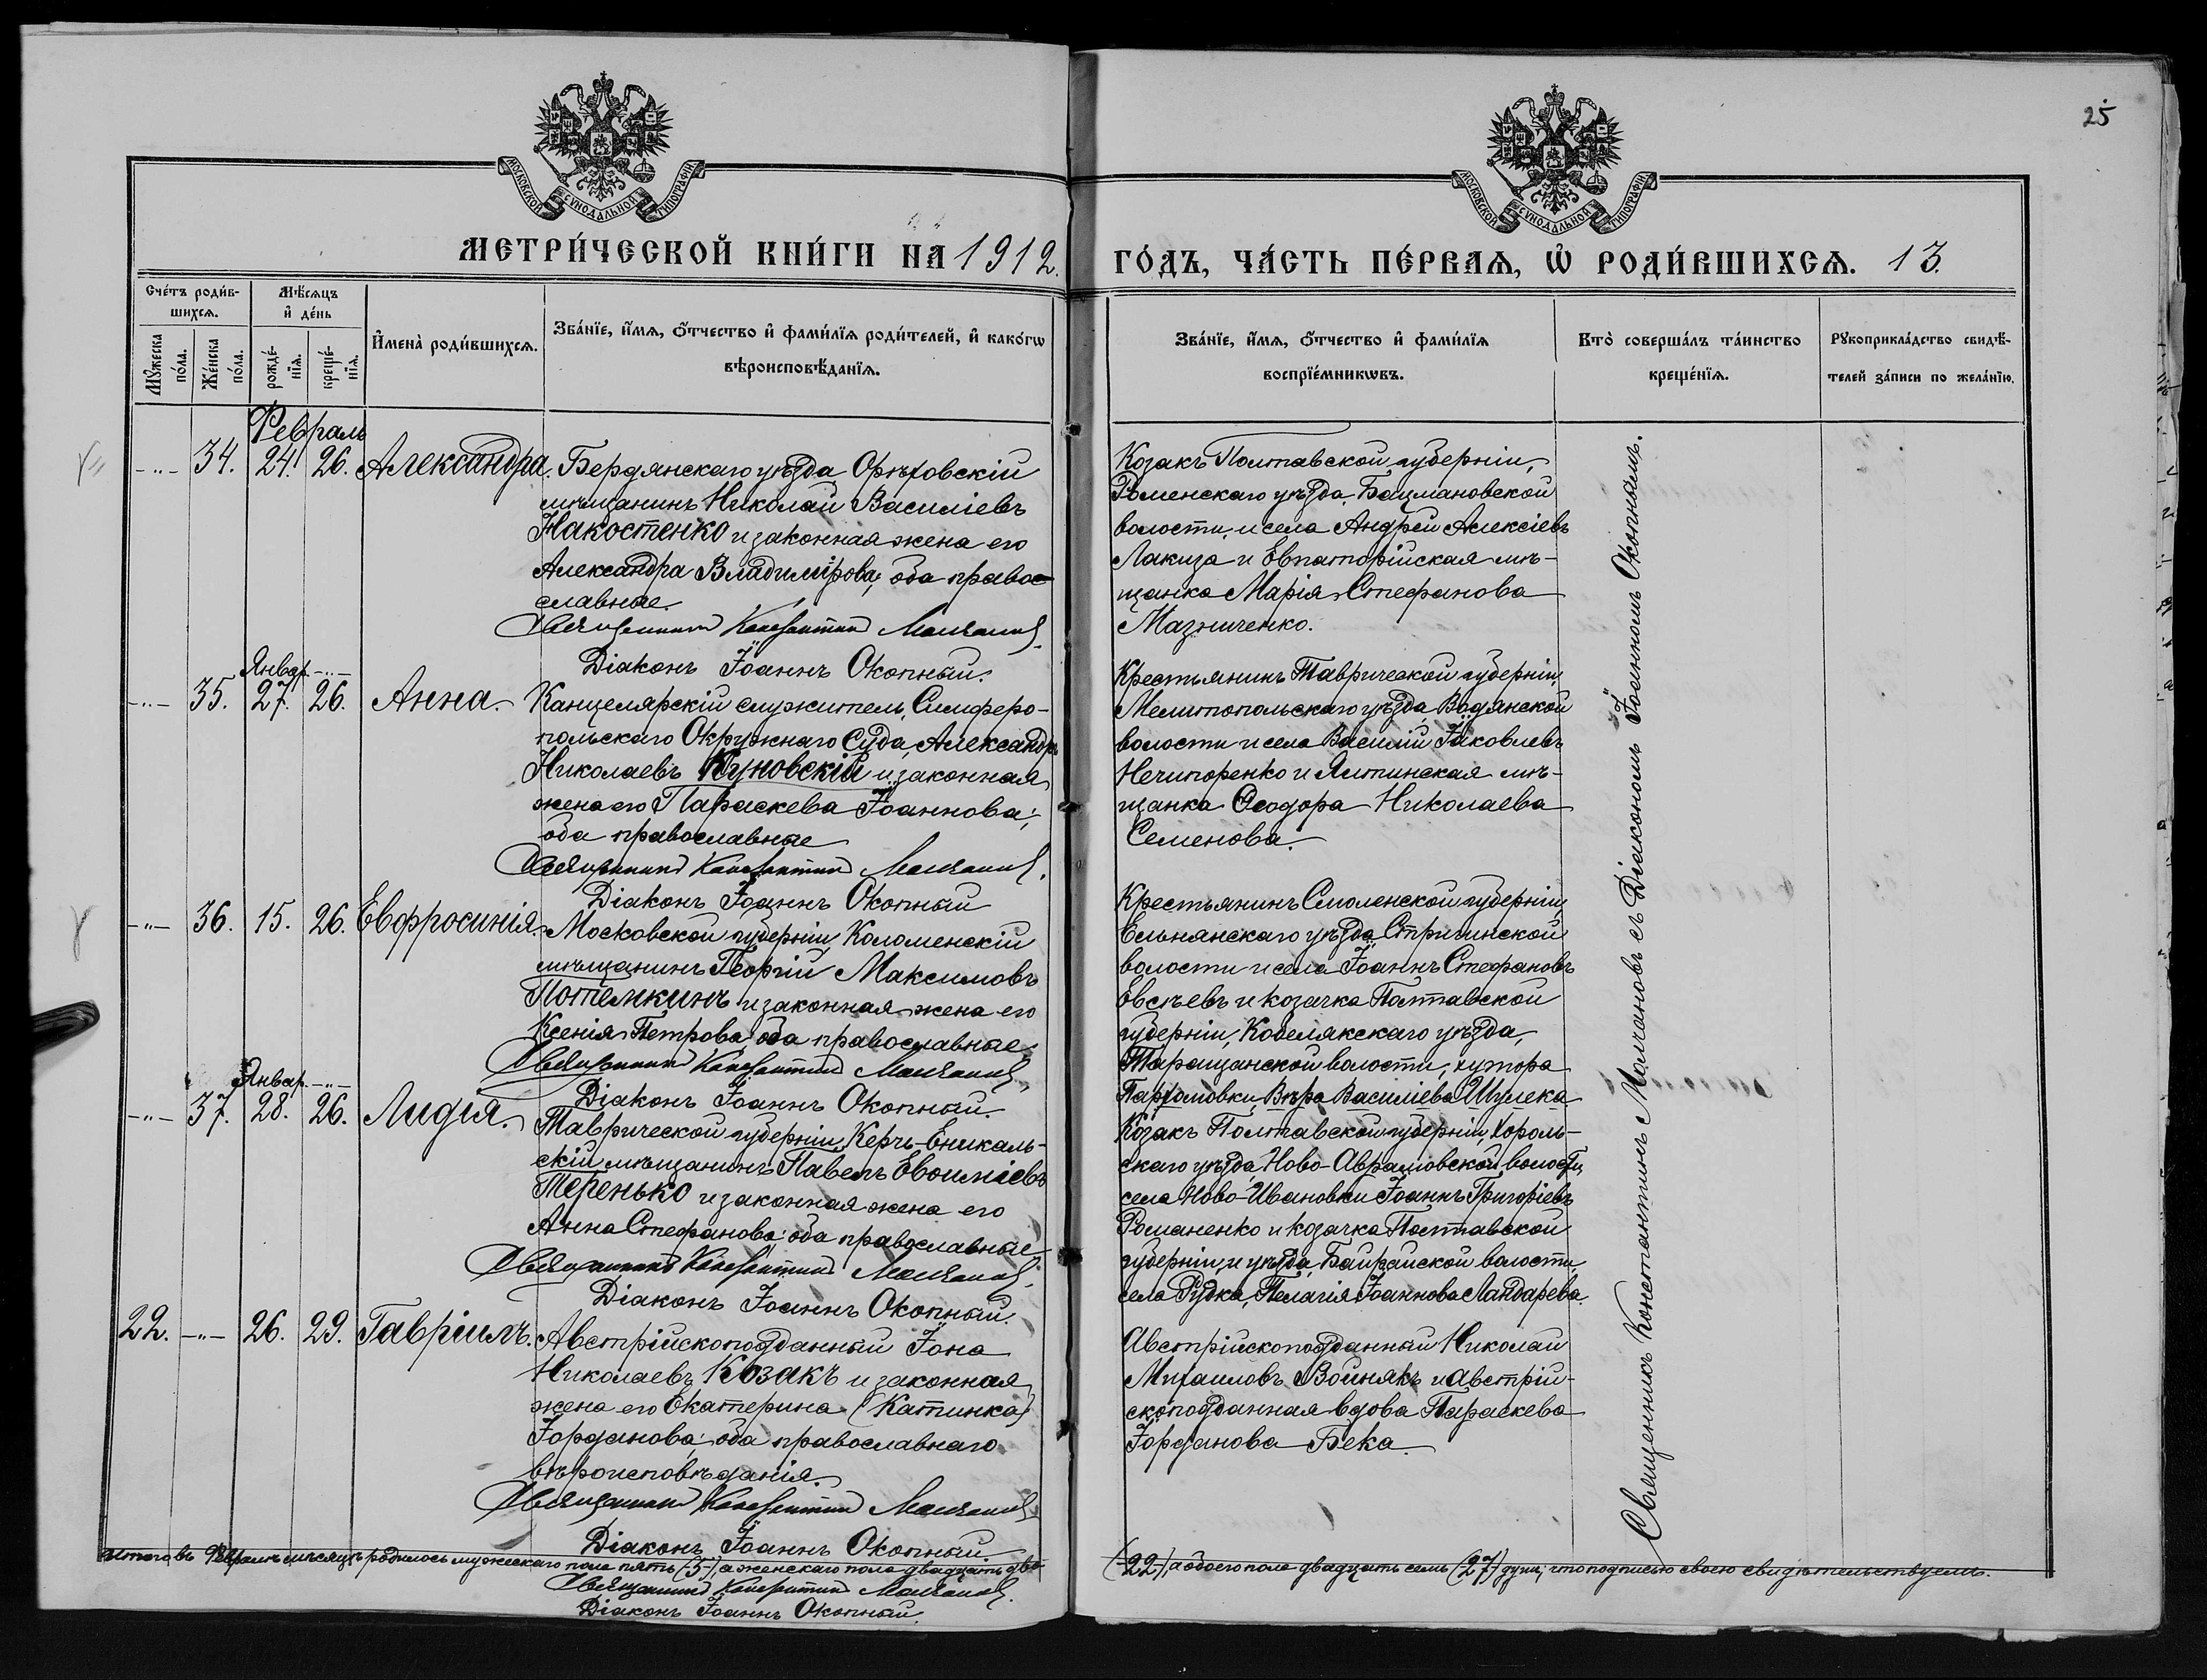 25
МОСКОВСКОЙ СѴНОДАЛЬНОЙ ТИПОГРАФІИ.
МОСКОВСКОЙ СѴНОДАЛЬНОЙ ТИПОГРАФІИ.
МЕТРИ́ЧЕСКОЙ КНИ́ГИ НА 1912.
ГО́ДЪ, ЧА́СТЬ ПЕ́РВАѦ, Ѡ҆ РОДИ́ВШИХСѦ. 13.
Счéтъ роди́в-
шихсѧ.
Мѣ́сѧцъ
и҆ дéнь
Мꙋ́жеска
по́ла.
Жéнска
по́ла.
рождé-
нїѧ.
крещé-
нїѧ.
И҆мена̀ роди́вшихсѧ.
Зва́нїе, и҆́мѧ, ѻ҆́тчество и҆ фами́лїѧ роди́телей, и҆ како́гѡ
вѣроисповѣ́данїѧ.
Зва́нїе, и҆́мѧ, ѻ҆́тчество и҆ фами́лїѧ
воспрїéмникѡвъ.
Кто̀ соверша́лъ та́инство
крещéнїѧ.
Рꙋкоприкла́дство свидѣ́-
телей за́писи по жела́нїю.
Февраль
-"- 34. 24. 26. Александра.
Бердянскаго уѣзда Орѣховскій
мѣщанинъ Николай Василіевъ
Накостенко и законная жена его
Александра Владимірова; оба право-
славные.
Священникъ Константинъ Молчановъ.
Діаконъ Іоаннъ Окопный.
Козакъ Полтавской губерніи,
Роменскаго уѣзда, Бацмановской
волости, и села Андрей Алексіевъ
Лакиза и Евпаторійская мѣ-
щанка Марія Стефанова
Мазниченко.
Январ. -"-
-"- 35. 27. 26. Анна.
Канцелярскій служитель, Симферо-
польскаго Окружнаго Суда, Александръ
Николаевъ Куновскій и законная
жена его Параскева Іоаннова;
оба православные
Священникъ Константинъ Молчановъ.
Діаконъ Іоаннъ Окопный
Крестьянинъ Таврической губерніи,
Мелитопольскаго уѣзда, Водянской
волости и села Василій Іаковлевъ
Нечипоренко и Ялтинская мѣ-
щанка Ѳеодора Николаева
Семенова.
-"- 36. 15. 26. Евфросинія.
Московской губерніи, Коломенскій
мѣщанинъ Георгій Максимовъ
Потемкинъ и законная жена его
Ксенія Петрова; оба православные.
Священникъ Константинъ Молчановъ.
Діаконъ Іоаннъ Окопный.
Крестьянинъ Смоленской губерніи,
Ельнянскаго уѣзда, Стригинской
волости и села Іоаннъ Стефановъ
Евсѣевъ и козачка Полтавской
губерніи, Кобелякскаго уѣзда,
волости, хутора
Парфомовки, Вѣра Василіева Шулека.
Январ. -"-
-"- 37. 28. 26. Лидія.
Таврической губерніи, Керчь-Еникаль-
скій мѣщанинъ Павелъ Евѳиміевъ
Теренько и законная жена его
Анна Стефанова; оба православные.
Священникъ Константинъ Молчановъ.
Діаконъ Іоаннъ Окопный.
Козакъ Полтавской губерніи, Хороль-
скаго уѣзда, Ново-Аврамовской волости,
села Ново-Ивановки Іоаннъ Григоріевъ
Романенко и козачка Полтавской
губерніи, и уѣзда, Байракской волости,
села Рудка, Пелагія Іоаннова Ландарева.
22. -"- 26. 29. Гавріилъ.
Австрійскоподданный Іона
Николаевъ Козакъ и законная
жена его Екатерина (Катинка)
Іорданова; оба православнаго
вѣроисповѣданія.
Священникъ Константинъ Молчановъ
Діаконъ Іоаннъ Окопный.
Австрійскоподданный Николай
Михаиловъ Войнякъ и австрій-
скоподданная вдова Параскева
Іорданова Бека.
Священникъ Константинъ Молчановъ съ Діакономъ Іоанномъ Окопнымъ.
Итого въ Февралѣ мѣсяцѣ родилось мужескаго пола пять (5), а женскаго пола двадцать два
(22), а обоего пола двадцать семь (27) душъ; что подписью своею свидѣтельствуемъ.
Священникъ Константинъ Молчановъ.
Діаконъ Іоаннъ Окопный.